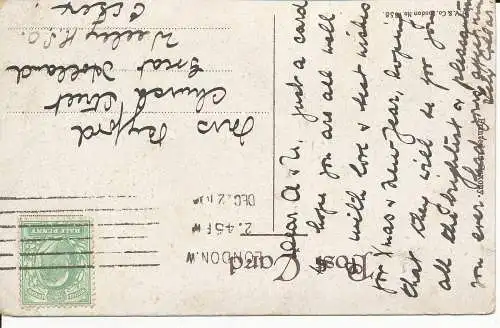 Post Card
LONDON.W
2.45 P
DEC. 2
HALFPENNY
Mrs Byford
Church Street
Great Holland
Weeley R.S.O.
Essex
Dear A & U, just a card
hope you are all well
with love & best wishes
for Xmas & New Year, hoping
that they will be for you
all the brightest & pleasantest
you ever had
& Co. London No